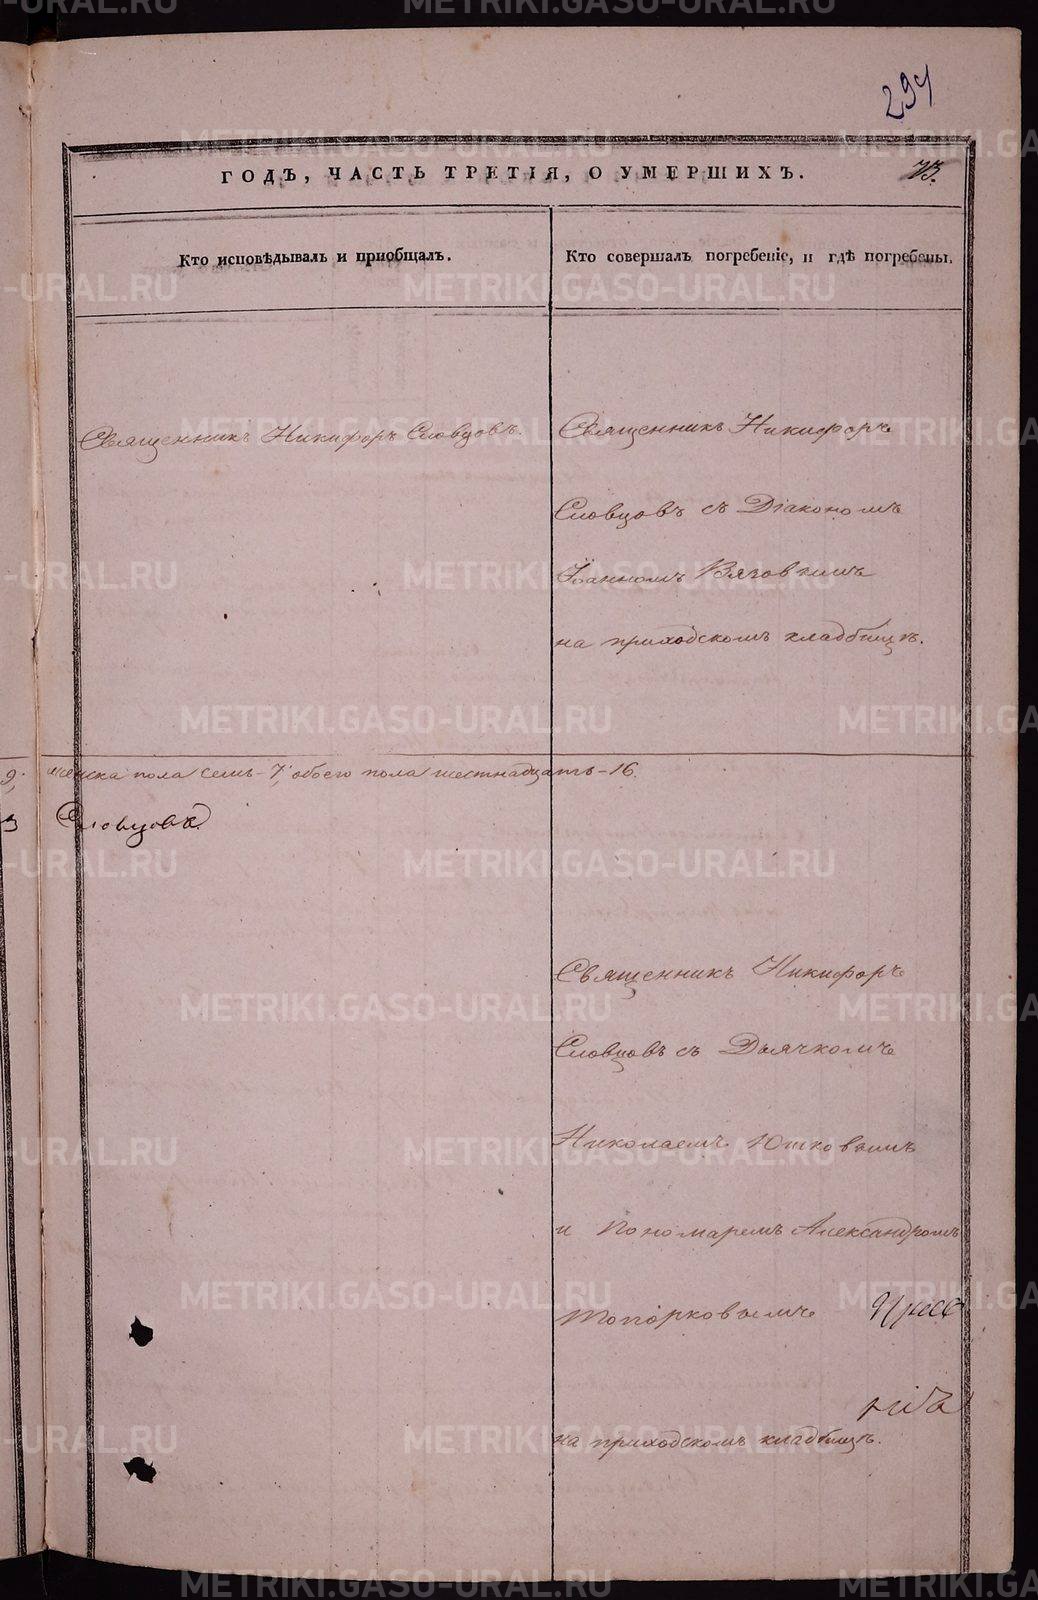 294
ГОДЪ, ЧАСТЬ ТРЕТІЯ, О УМЕРШИХЪ.
73.
Кто исповѣдывалъ и пріобщалъ.
Кто совершалъ погребеніе, и гдѣ погребены.
Священникъ Никифоръ Словцовъ.
Священникъ Никифоръ
Словцовъ съ Діакономъ
Іоанномъ Вяговымъ
на приходскомъ кладбищѣ.
9; женска пола семь - 7; обоего пола шестнадцать - 16.
Словцовъ.
Священникъ Никифоръ
Словцовъ съ Дьячкомъ
Николаемъ Юшковымъ
и Пономаремъ Александромъ
Топорковымъ
на приходскомъ кладбищѣ.
METRIKI.GASO-URAL.RU